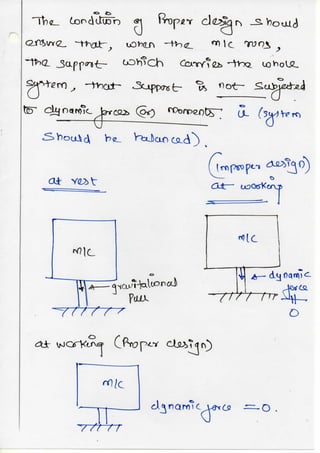 The condition of Proper design should
ensure that, when the m/c runs,
the support which carries the whole
system, that support is not subjected
to dynamic forces (or) moments. ie (system
should be balanced).
(Improper design)
at rest
at working
m/c
m/c
gravitational
Pull
dynamic
force
≠
0
at working (Proper design)
m/c
dynamic force = 0.